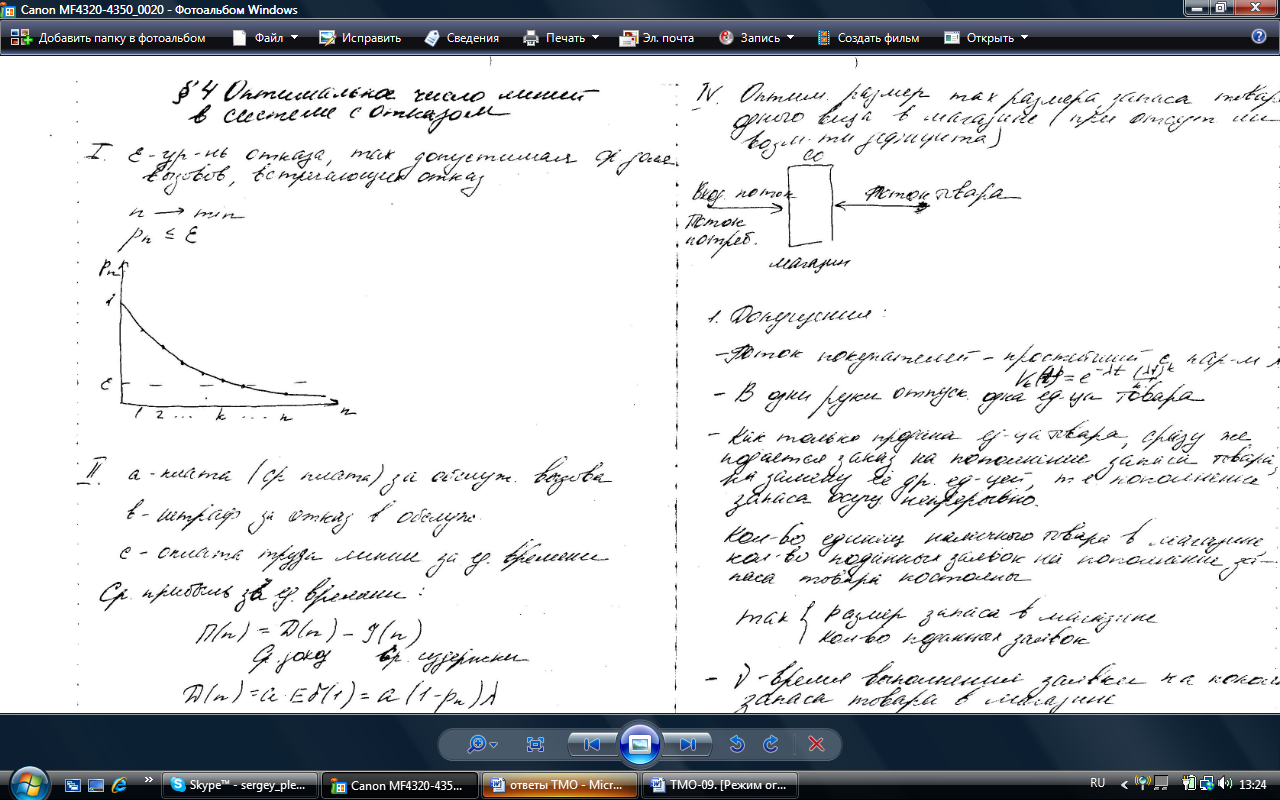 Canon MF4320-4350_0020 - Фотоальбом Windows
Добавить папку в фотоальбом Файл Исправить Сведения Печать Эл. почта Запись Создать фильм Открыть
§ 4 Оптимальное число линий
в системе с отказом
I. ε - ур-нь отказа, max допустимая ср доля
вызовов, встречающих отказ
n → min
pₙ ≤ ε
Pₙ
1
ε
1 2 ... k ... n
n
II. a - плата (ср плата) за обслуж. вызова
в - штраф за отказ в обслуж.
c - оплата труда линии за ед. времени
Ср. прибыль за ед. времени :
П(n) = Д(n) - У(n)
Ср. доход ср. издержки
Д(n) = a · Eδ(1) = a (1 - pₙ) λ
IV. Оптим. размер max размера запаса товара
одного вида в магазине (при отсут
возм-ти дефицита)
СО
Вход. поток
Поток
потреб.
Поток товара
магазин
1. Допущения :
- Поток покупателей - простейший с пар-м λ
Vₖ(t) = e^(-λt) (λt)^k / k!
- В одни руки отпуск. одна ед-ца товара
- Как только продана ед-ца товара, сразу же
подается заказ на пополнение запаса товара,
на замену её др. ед-цей, т е пополнение
запаса осущ непрерывно.
Кол-во единиц наличного товара в магазине
кол-во поданных заявок на пополнение за-
паса товара постоянны
max { размер запаса в магазине
кол-во поданных заявок
- ν - время выполнения заявки на попол
запаса товара в магазине
Skype™ - sergey_ple... Canon MF4320-435... ответы ТМО - Micr... ТМО-09. [Режим ог... RU 13:24